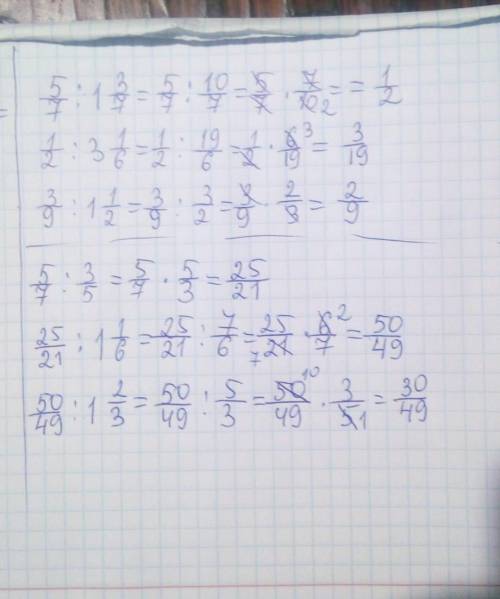 5/7 : 1 3/7 = 5/7 : 10/7 = 5/7 · 7/10 2 = = 1/2
1/2 : 3 1/6 = 1/2 : 19/6 = 1/2 · 6 3/19 = 3/19
3/9 : 1 1/2 = 3/9 : 3/2 = 3/9 · 2/3 = 2/9
5/7 : 3/5 = 5/7 · 5/3 = 25/21
25/21 : 1 1/6 = 25/21 : 7/6 = 25/7 21 · 6 2/7 = 50/49
50/49 : 1 2/3 = 50/49 : 5/3 = 50 10/49 · 3/5 1 = 30/49